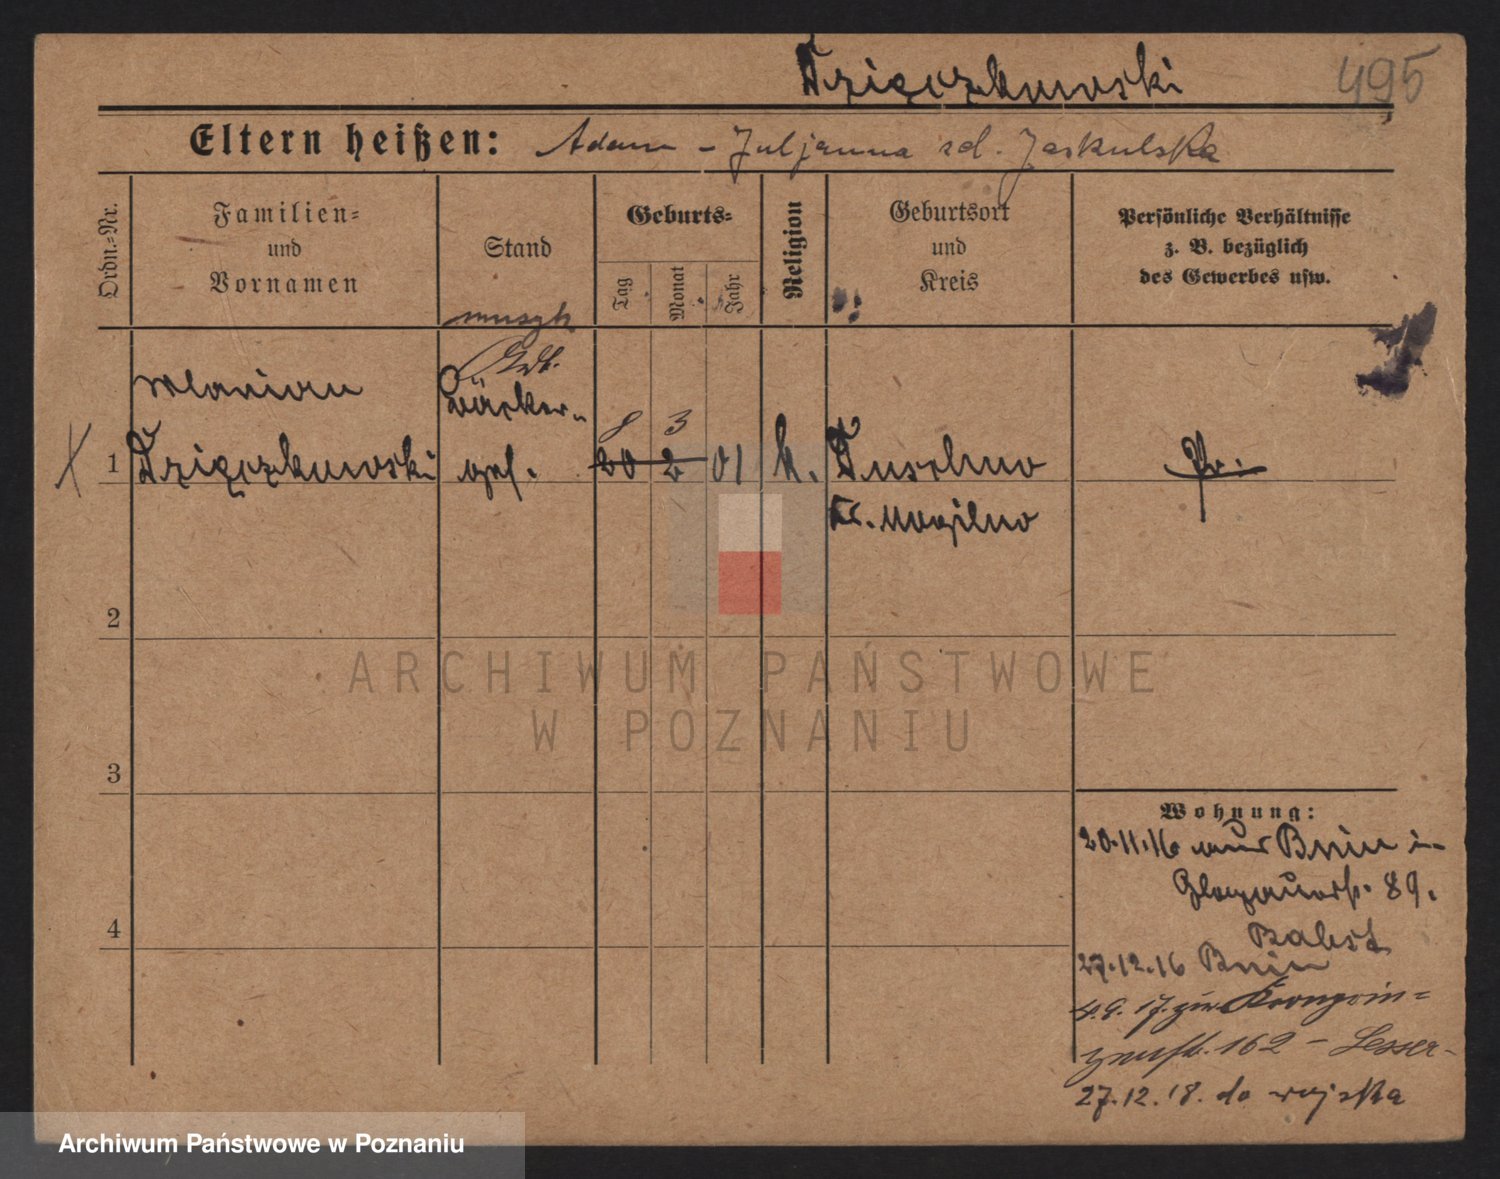 Dzięczkowski 495
Eltern heißen: Adam - Juljanna zd. Jaskulska
Ordn.-Nr.
Familien-
und
Vornamen
Stand
Geburts-
Tag
Monat
Jahr
Religion
Geburtsort
und
Kreis
Persönliche Verhältnisse
z. B. bezüglich
des Gewerbes usw.
Marian
Bäcker-
8 3
1 Dzięczkowski ges. 20 2 01 k. Duschno Pr.
Kr. Mogilno
2
ARCHIWUM PAŃSTWOWE
W POZNANIU
3
Wohnung:
20.11.16 aus Bnin in
Glogauerstr. 89.
Babst
4
27.12.16 Bnin
4.9.17. zur. Kronprin=
zenstr. 162 - Lesser-
27.12.18. do wojska
Archiwum Państwowe w Poznaniu